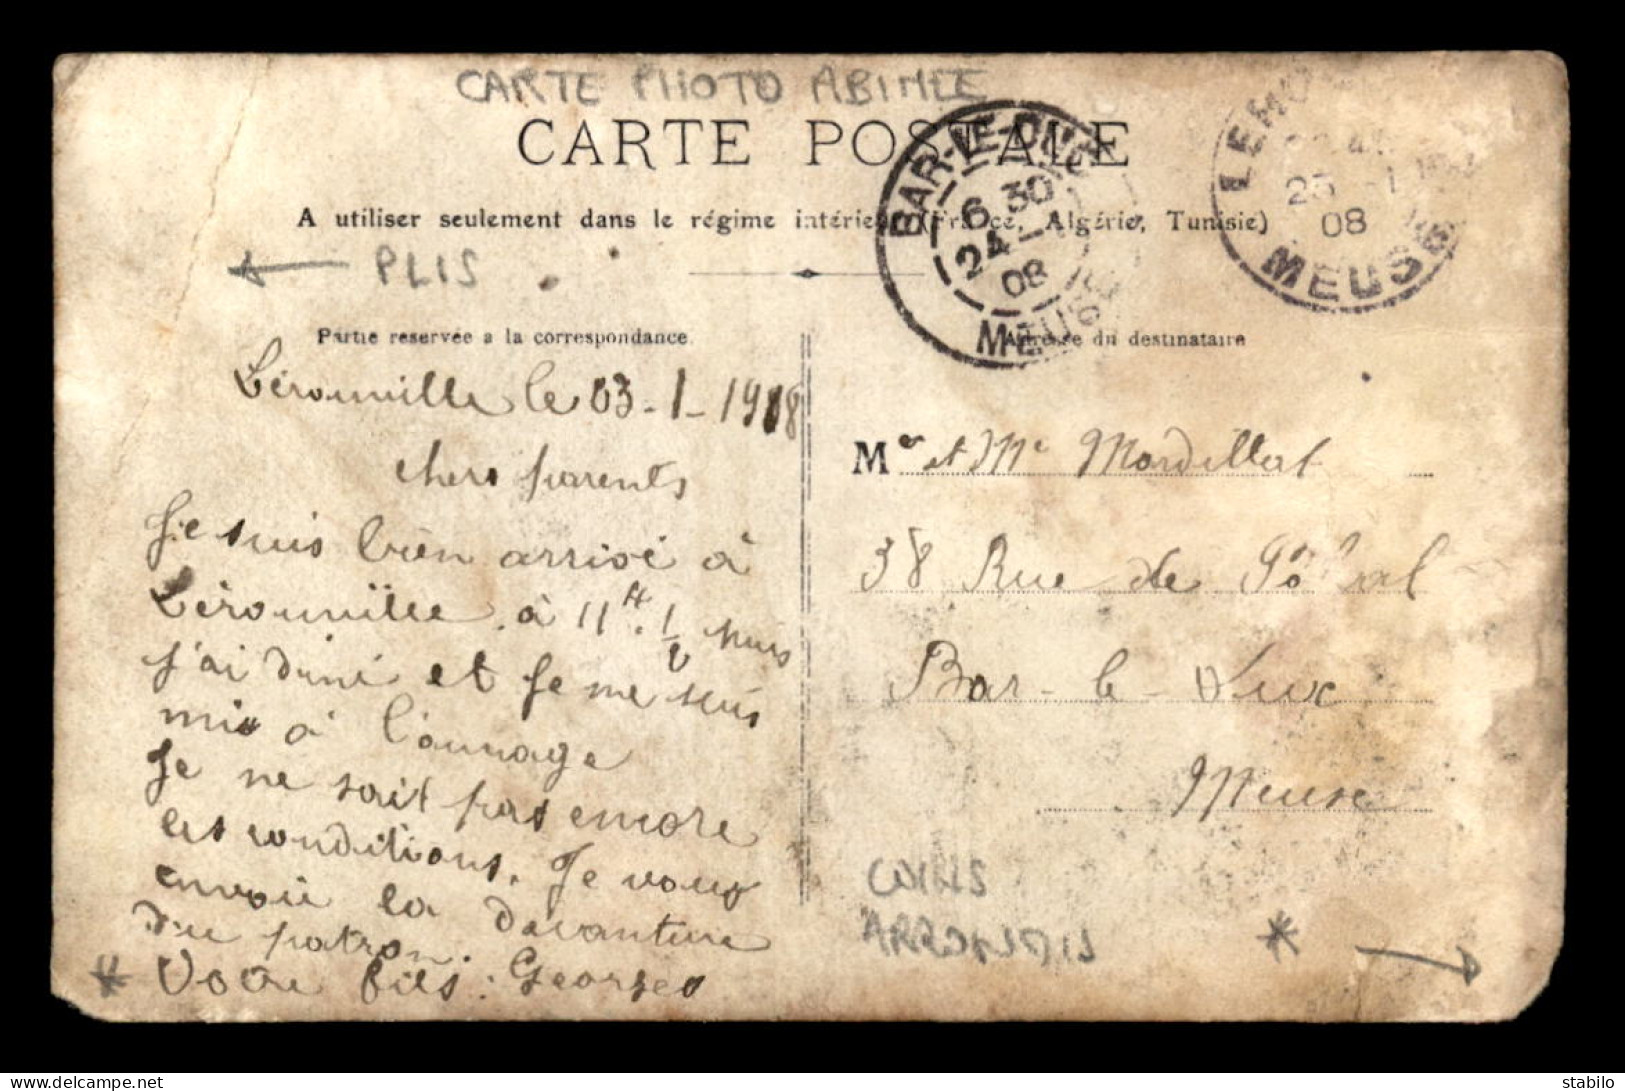 CARTE PHOTO ABIMEE
CARTE POSTALE
A utiliser seulement dans le régime intérieur (France, Algérie, Tunisie)
← PLIS
BAR-LE-DUC
6 30
24 - 1
08
MEUSE
08
MEUSE
Partie reservée a la correspondance
Adresse du destinataire
Lérouville le 03-1-1908
chers parents
Je suis bien arrivé à
Lérouville à 11H. 1/2 puis
j'ai diné et je me suis
mis à l'ouvrage
Je ne sait pas encore
les conditions. Je vous
envoie la devanture
du patron.
* Votre fils : Georges
Mer et Me Mordillat
38 Rue de
Bar-le-Duc
Meuse
COINS
ARRONDIS
* →
stabilo